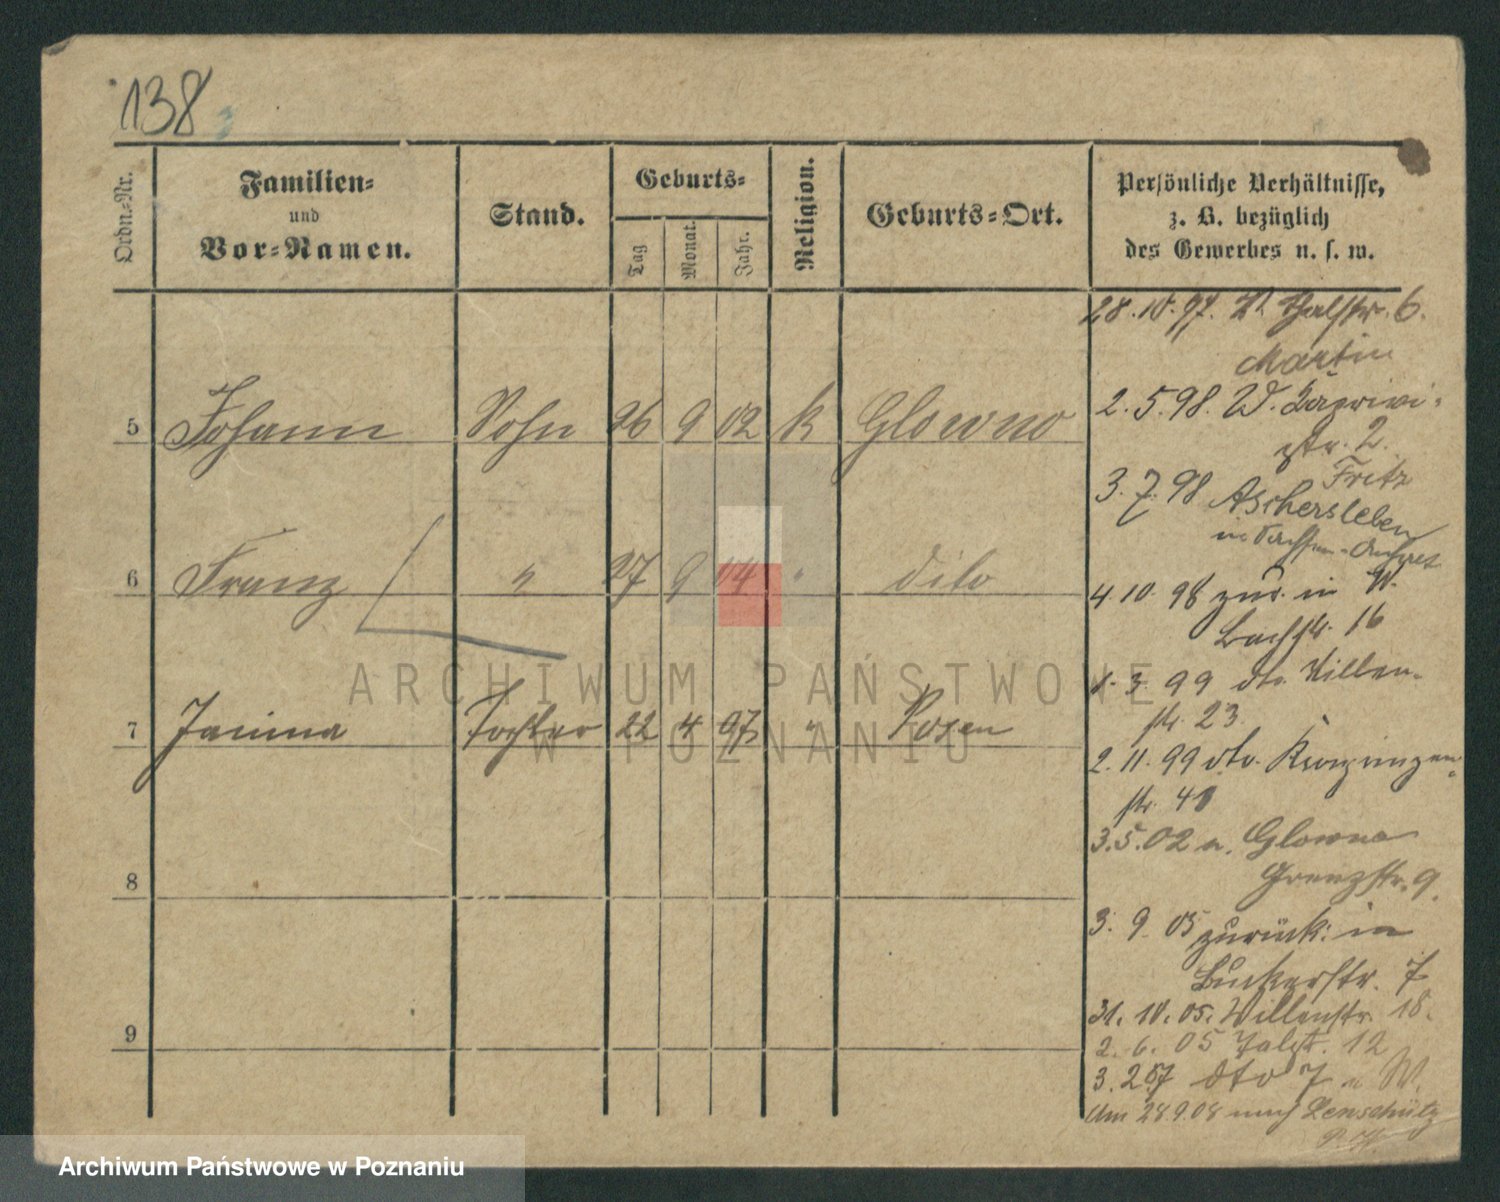 138
Ordn.-Nr.
Familien-
und
Vor-Namen.
Stand.
Geburts-
Tag
Monat.
Jahr.
Religion.
Geburts-Ort.
Persönliche Verhältnisse,
z. B. bezüglich
des Gewerbes u. s. w.
5 Johann Sohn 26 9 02 k Glowno
6 Franz " 27 9 04 " dito
7 Janina Tochter 22 4 97 " Posen
8
9
28.10.97. W Thalstr. 6.
Martin
2.5.98. W.
str. 2.
Fritz
3.7.98 Aschersleben
in Sachsen-Anhalt
4.10.98 zur. in W.
Bachstr. 16
3.99 dto. Willen-
str. 23
2.11.99 dto. Kronprinzen-
str. 41
3.5.02 n. Glowno
Grenzstr. 9.
3.9.05 zurück: in
Buckerstr. 7
31.10.05. Willenstr. 18.
2.6.05 Talstr. 12
3.2.07 dto 7 W.
Am 28.9.08 nach
ARCHIWUM PAŃSTWOWE
W POZNANIU
Archiwum Państwowe w Poznaniu